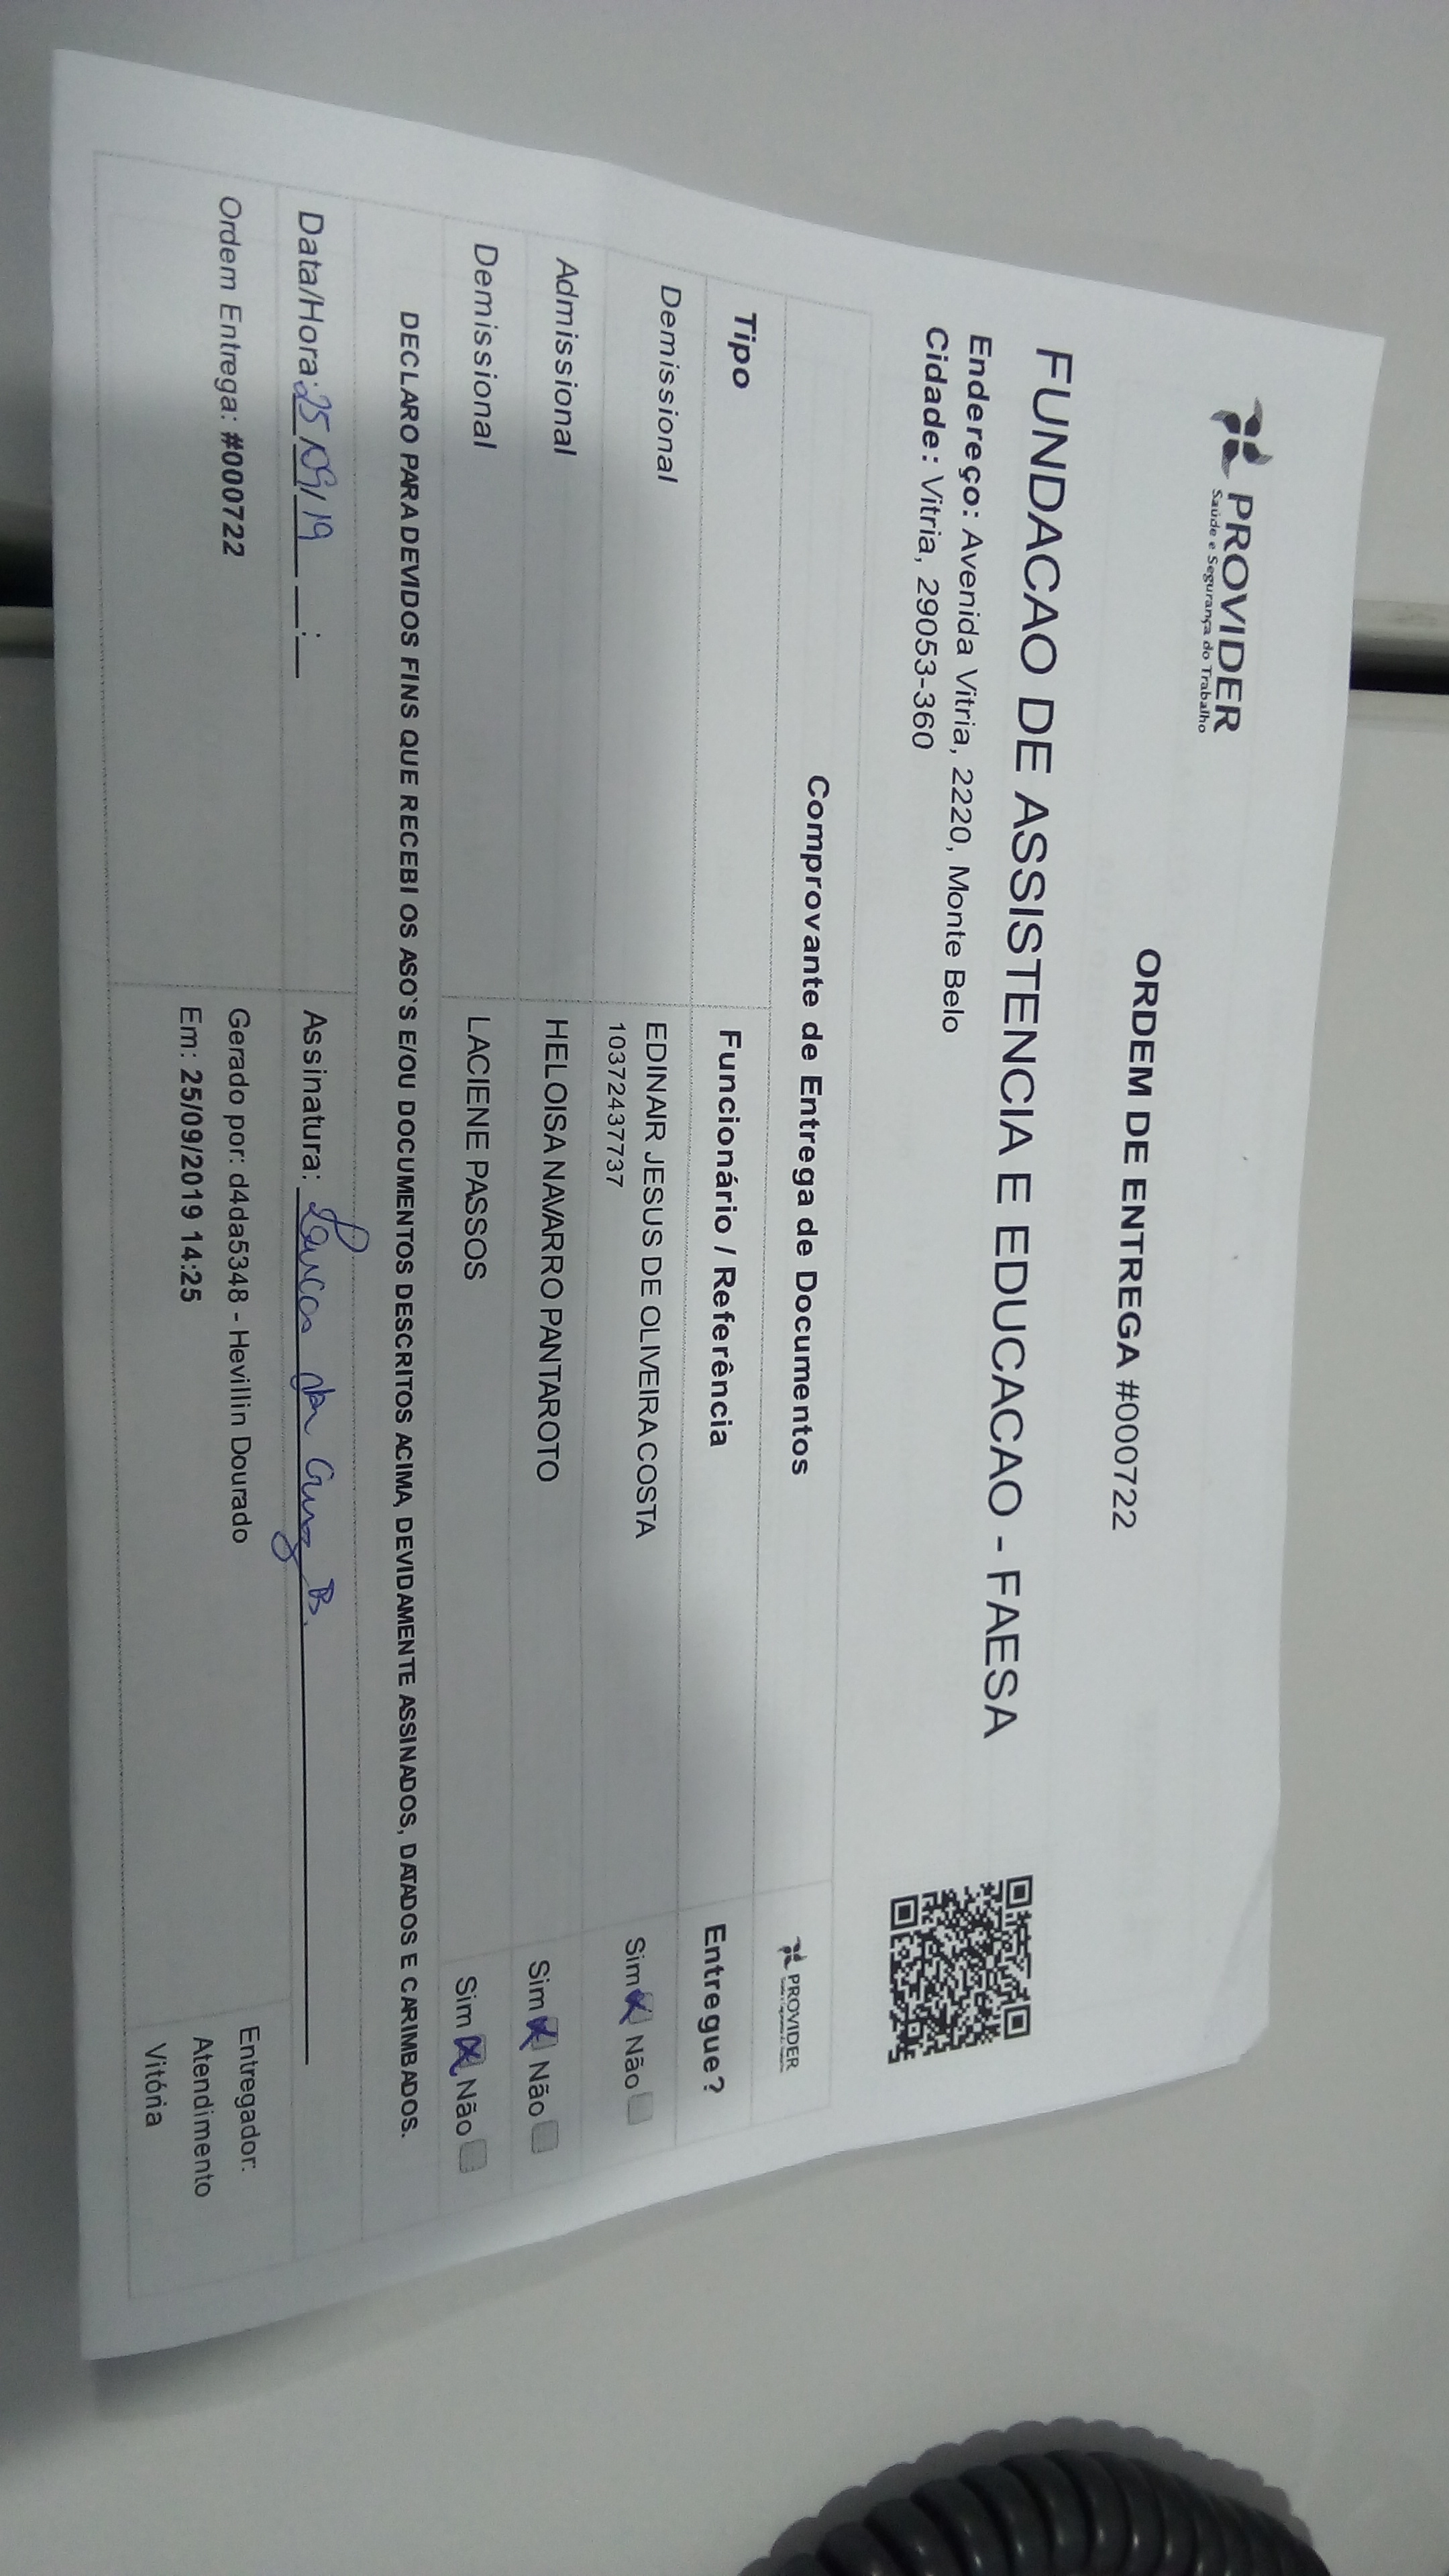 PROVIDER
Saúde e Segurança do Trabalho
ORDEM DE ENTREGA #000722
FUNDACAO DE ASSISTENCIA E EDUCACAO - FAESA
Endereço: Avenida Vitria, 2220, Monte Belo
Cidade: Vitria, 29053-360
Comprovante de Entrega de Documentos
PROVIDER
Tipo Funcionário / Referência Entregue?
Demissional EDINAIR JESUS DE OLIVEIRA COSTA Sim Não
10372437737
Admissional HELOISA NAVARRO PANTAROTO Sim Não
Demissional LACIENE PASSOS Sim Não
DECLARO PARA DEVIDOS FINS QUE RECEBI OS ASO'S E/OU DOCUMENTOS DESCRITOS ACIMA, DEVIDAMENTE ASSINADOS, DATADOS E CARIMBADOS.
Data/Hora: 25/09/19 __:__ Assinatura:
Ordem Entrega: #000722 Gerado por: d4da5348 - Hevillin Dourado Entregador:
Em: 25/09/2019 14:25 Atendimento
Vitória